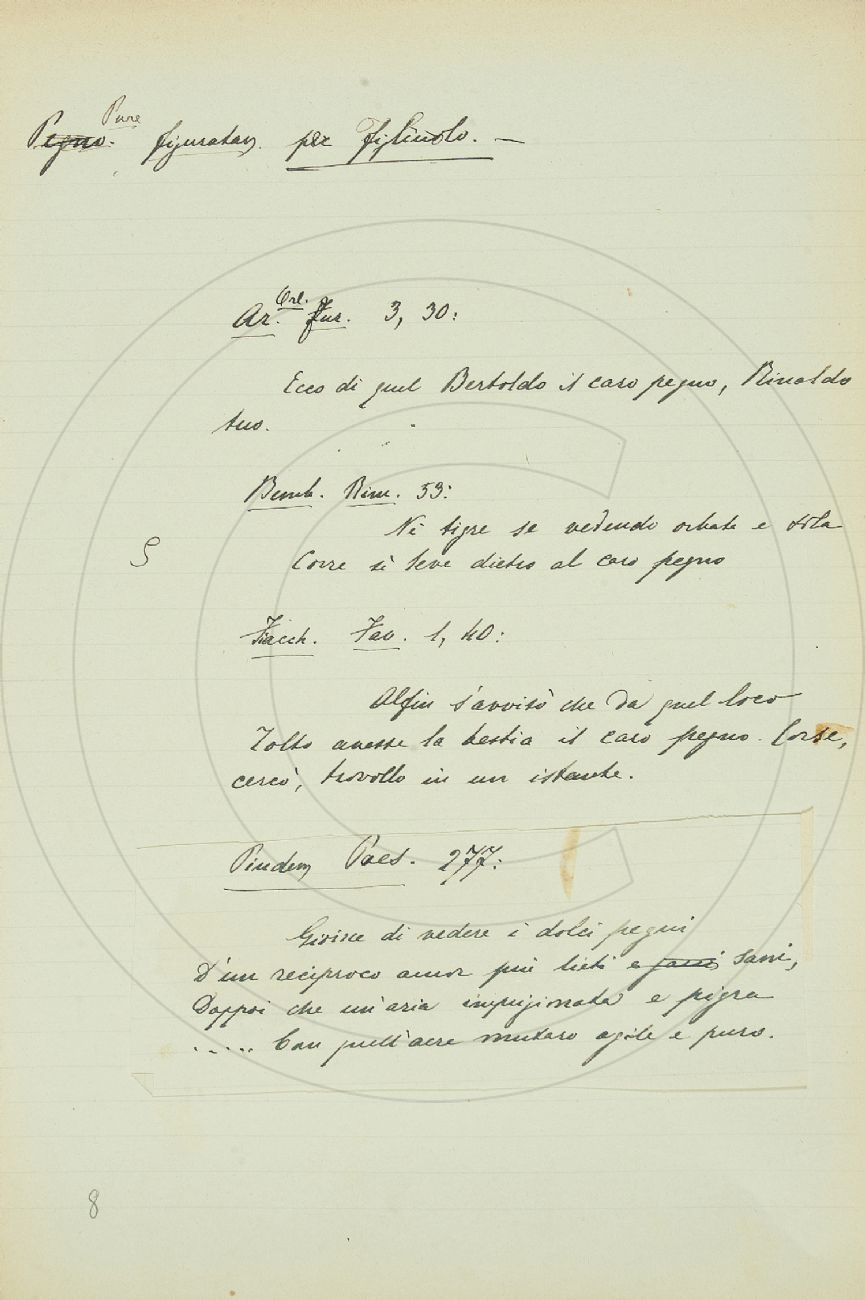 Pure
Pegno. figuratam. per Figliuolo. —
Ar. Orl. Fur. 3, 30:
Ecco di quel Bertoldo il caro pegno, Rinaldo
tuo.
Bemb. Rim. 53:
Nè tigre se vedendo orbata e sola
S
Corre sì leve dietro al caro pegno
Fiacch. Fav. 1, 40:
Alfin s'avvisò che da quel loco
Tolto avesse la bestia il caro pegno. Corse,
cercò, trovollo in un istante.
Pindem. Poes. 277:
Gioisce di vedere i dolci pegni
D'un reciproco amor più lieti e sani,
Dappoi che un'aria imprigionata e pigra
..... Con quell'aere mutaro agile e puro.
8